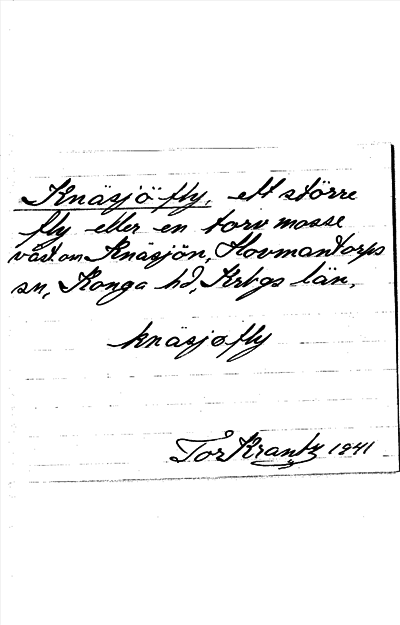 Knäsjöfly, ett större
fly eller en torvmosse
väst om Knäsjön, Hovmantorps
sn, Konga hd, Krbgs län.
knäsjøfly
Tor Krantz 1941